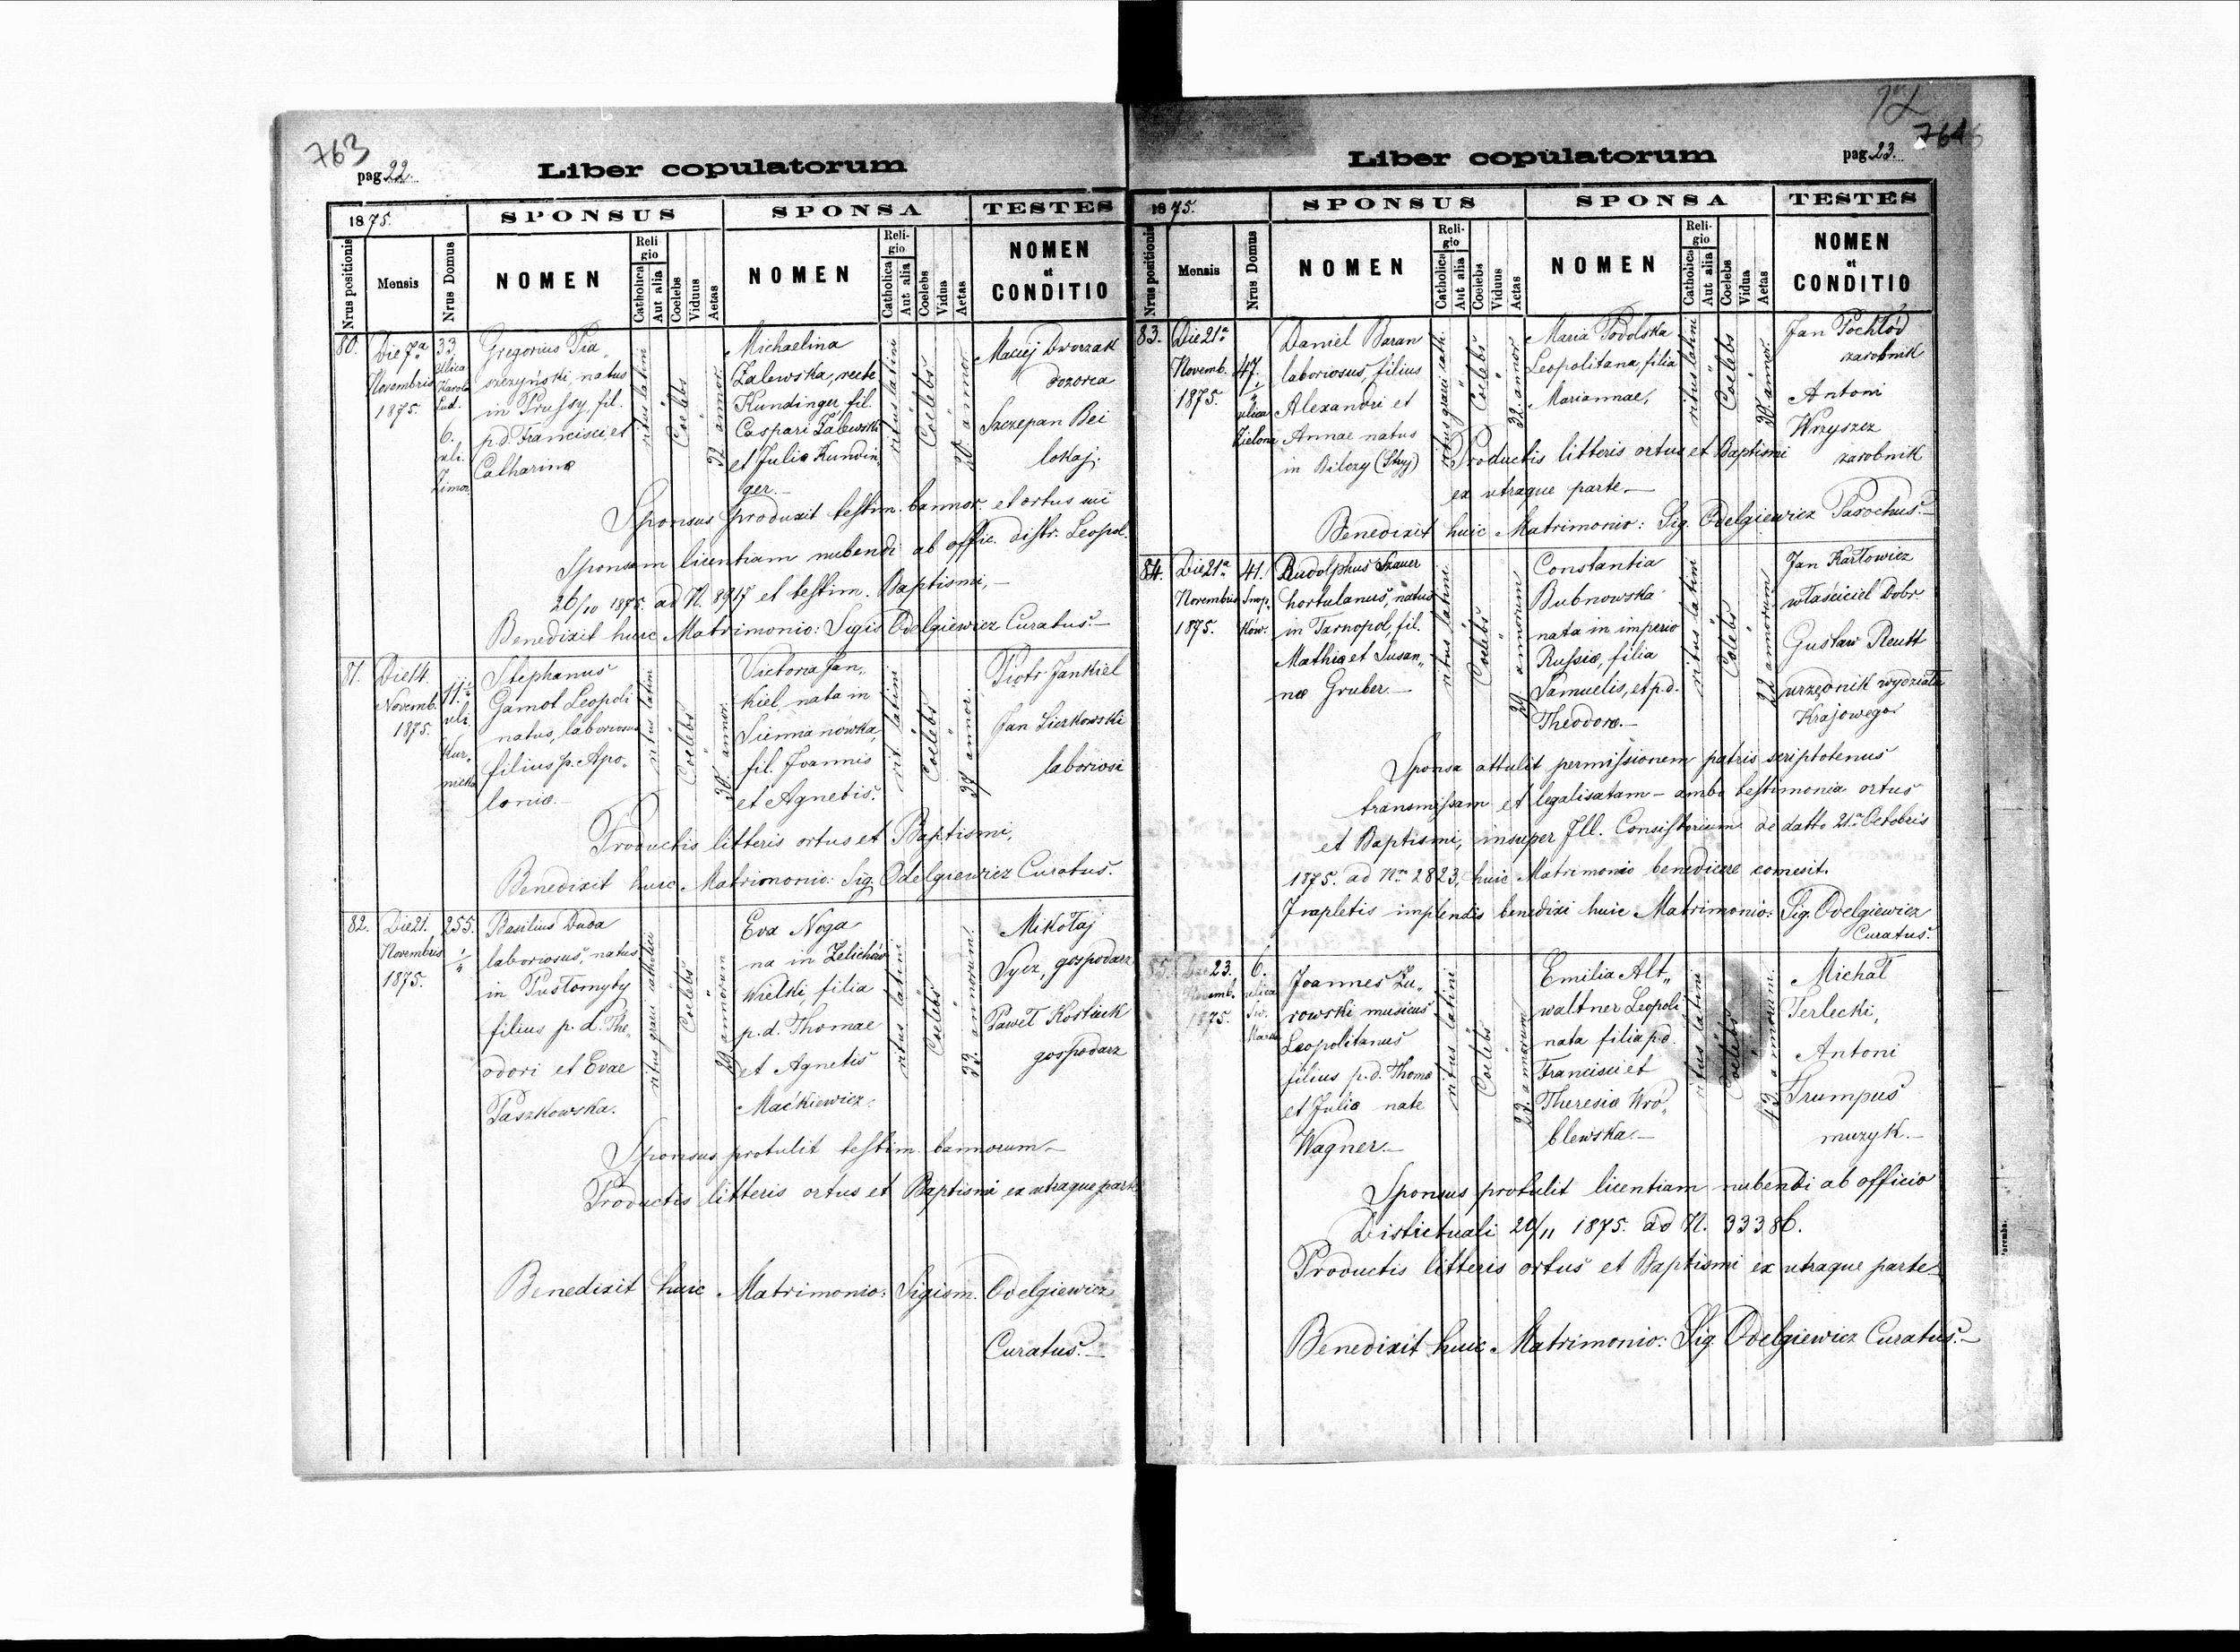 763
pag 22.
Liber copulatorum
1875.
SPONSUS
SPONSA
TESTES
Nrus positionis
Mensis
Nrus Domus
NOMEN
Religio
Catholica
Aut alia
Coelebs
Viduus
Aetas
NOMEN
Religio
Catholica
Aut alia
Coelebs
Vidua
Aetas
NOMEN
et
CONDITIO
80.
Die 7a
Novembris
1875.
33.
ulica
Karola
Lud.
6.
uli.
Zimor.
Gregorius Pia„
szczyński, natus
in Prussy, fil.
p.d. Francisci, et
Catharinæ
ritus latini
Coelebs
32 annor.
Michaelina
Zalewska, recte
Kundinger, fil.
Caspari Zalewski
et Juliæ Kundin„
ger.—
ritus latini
Coelebs
annor.
Maciej Dworzak
dozorca
Szczepan Bei
lokaj.
Sponsus produxit testim. bannor. et ortus sui
Sponsam licentiam nubendi ab offic. distr. Leopol.
26/10 1875. ad N. 8917 et testim. Baptismi,—
Benedixit huic Matrimonio: Sigis Odelgiewicz Curatus.—
81.
Die 14.
Novemb.
1875.
11
uli.
Kur„
nicka
Stephanus
Gamot Leopoli
natus, laboriosus
filius p. Apo„
loniæ.—
ritus latini
Coelebs
annor.
Victoria Jan„
kiel, nata in
Sienna nowka,
fil. Joannis
et Agnetis.
rit. latini
Coelebs
annor.
Piotr Jankiel
Jan Sierkowski
laboriosi
Productis litteris ortus et Baptismi,
Benedixit huic Matrimonio: Sig. Odelgiewicz Curatus.
82.
Die 21.
Novembris
1875.
255.
Basilius Duda
laboriosus, natus
in Pustomyty
filius p. d. The„
odori et Evae
Paszkowska.
ritus graeci catholici
Coelebs
29 annorum
Eva Noga
na in Zelichów
Wielki, filia
p.d. Thomae
et Agnetis
Maćkiewicz.
ritus latini
Coelebs
33. annorum.
Mikołaj
Sycz, gospodarz
Paweł Kostiuk
gospodarz
Sponsus protulit testim. bannorum—
Productis litteris ortus et Baptismi ex utraque parte
Benedixit huic Matrimonio: Sigism. Odelgiewicz
Curatus.—
764
pag 23.
Liber copulatorum
1875.
SPONSUS
SPONSA
TESTES
Nrus positionis
Mensis
Nrus Domus
NOMEN
Religio
Catholica
Aut alia
Coelebs
Viduus
Aetas
NOMEN
Religio
Catholica
Aut alia
Coelebs
Vidua
Aetas
NOMEN
et
CONDITIO
83.
Die 21a
Novemb.
1875.
47.
ulica
Zielona
Daniel Baran
laboriosus, filius
Alexandri et
Annae natus
in Bilczy (Stryj)
ritus graeci cath.
Coelebs
32. annor.
Maria Podolska
Leopolitana, filia
Mariannae,
ritus latini
Coelebs
30 annor.
Jan Pochłód
zarobnik
Antoni
Wrzyszcz
zarobnik
Productis litteris ortus et Baptismi
ex utraque parte.—
Benedixit huic Matrimonio: Sig. Odelgiewicz Parochus.—
84.
Die 21a
Novembris
1875.
41.
Snop.
ków.
Rudolphus Szauer
hortulanus, natus
in Tarnopol, fil.
Mathiæ et Susan„
næ Gruber.—
ritus latini
Coelebs
29 annorum
Constantia
Bubnowska
nata in imperio
Russiæ, filia
Samuelis, et p.d.
Theodoræ.—
ritus latini
Coelebs
22 annorum
Jan Karłowicz
właściciel Dobr
Gustaw Reutt
urzędnik wydziału
Krajowego
Sponsa attulit permissionem patris scriptotenus
transmissam et legalisatam — ambo testimonia ortus
et Baptismi, insuper Ill. Consistorium de datto 21a Octobris
1875. ad Nr. 2823, huic Matrimonio benedicere comesit.
Impletis implendis benedixi huic Matrimonio: Sig. Odelgiewicz
Curatus.
85.
Die 23.
Novemb.
1875.
6.
ulica
Św.
Marcina
Joannes Żu„
rowski musicus
Leopolitanus
filius p.d. Thomæ
et Juliæ natæ
Wagner.—
ritus latini
Coelebs
23. annorum
Emilia Alt„
waltner Leopoli
nata filia p.d.
Francisci et
Theresiæ Wró„
blewska.—
ritus latini
Coelebs
annorum.
Michał
Terlecki,
Antoni
Trumpus
muzyk.—
Sponsus protulit licentiam nubendi ab officio
Districtuali 20/11 1875. ad N. 33386.
Productis litteris ortus et Baptismi ex utraque parte—
Benedixit huic Matrimonio: Sig. Odelgiewicz Curatus.—